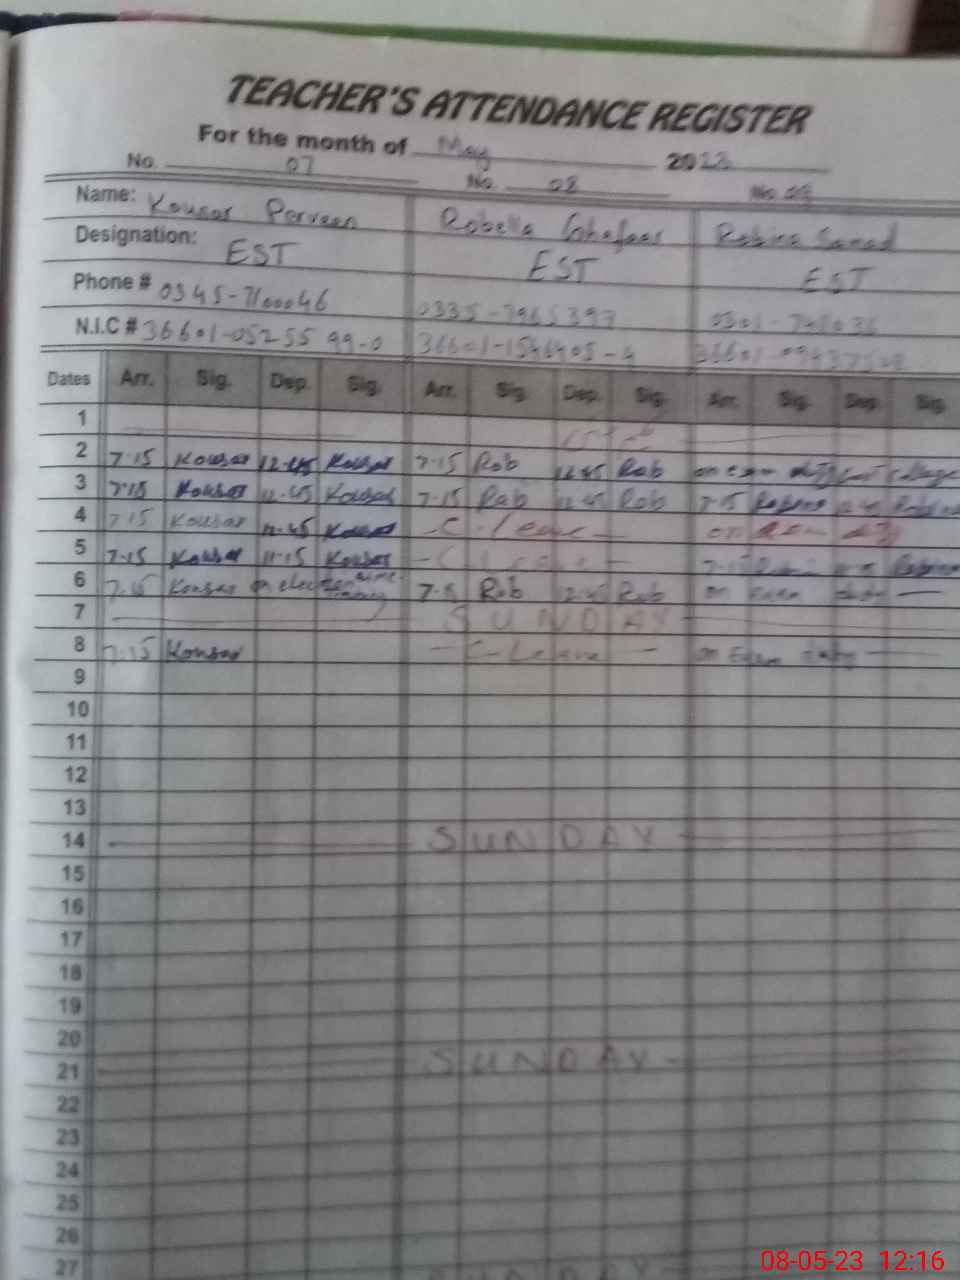 TEACHER'S ATTENDANCE REGISTER
For the month of May 2023
No. 07 No. 08 No. 09
Name: Kousar Parveen Robella Ghafaar Robina Samad
Designation: EST EST EST
Phone # 0345-7100046 0335-7965397 0301-
N.I.C # 36601-0525599-0 36601-1546405-4 36601-
Dates Arr. Sig. Dep. Sig. Arr. Sig. Dep. Sig. Arr. Sig. Dep. Sig.
1
2 7-15 Kousar 12-45 Kousar 7-15 Rob 12 45 Rob on exam
3 7-15 Kousar 12-45 Kousar 7-15 Rob 12 45 Rob 7-15 Robina Robina
4 7-15 Kousar 12-45 Kousar - C - leave -
5 7-15 Kousar 11-15 Kousar - C Robina
6 7-15 Kousar on election 7-15 Rob 12 45 Rob on exam duty —
7 SUNDAY
8 7-15 Kousar - C-Leave - on Exam duty
9
10
11
12
13
14 SUNDAY
15
16
17
18
19
20
21 SUNDAY
22
23
24
25
26
27
08-05-23 12:16